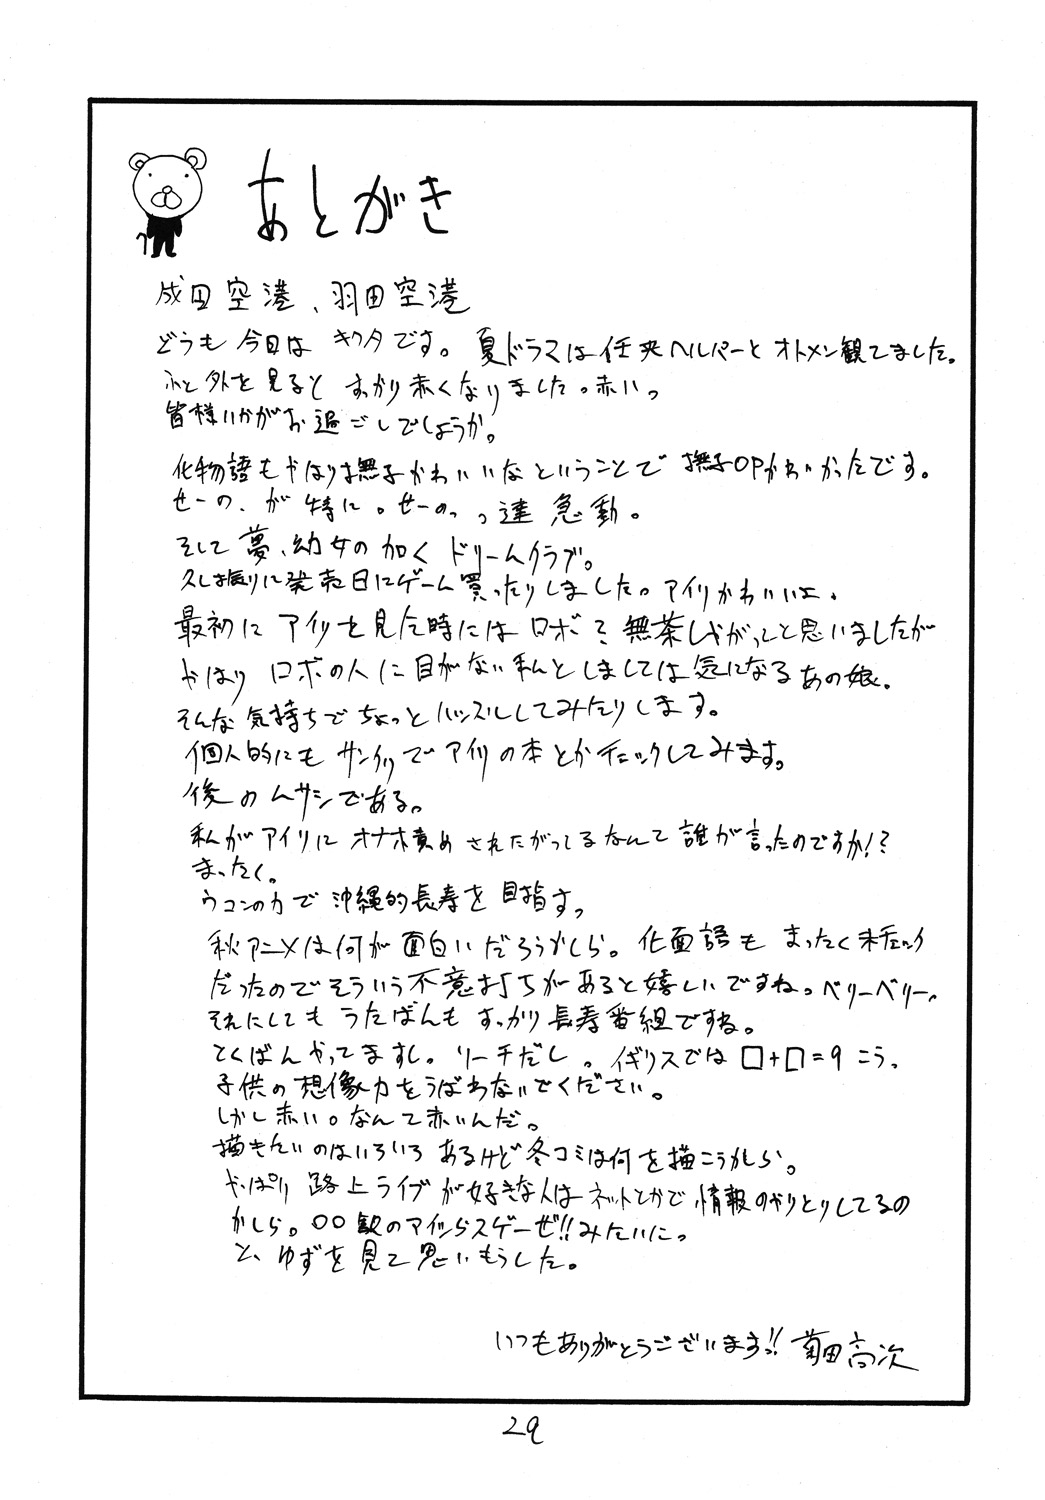 あとがき
成田空港、羽田空港
どうも今日は キクタです。夏ドラマは任侠ヘルパーとオトメン観てました。
ふと外を見ると すっかり赤くなりました。赤いっ
皆様いかがお過ごしでしょうか。
化物語もやはり撫子かわいいなということで 撫子OPかわいかったです。
せーの、が特に。せーのっっ達急動。
そして夢、幼女の如く ドリームクラブ。
久し振りに発売日にゲーム買ったりしました。アイリかわいいよ、
最初に アイリを見た時には ロボ？無茶しやがってと思いましたが
やはり ロボの人に目がない私としましては気になるあの娘。
そんな気持ちで ちょっとハッスルしてみたりします。
個人的にも サンクリでアイリの本とかチェックしてみます。
後のムサシである。
私がアイリに オナホ責めされたがってるなんて 誰が言ったのですか!?
まったく。
ウコンの力で 沖縄的長寿を目指すっ
秋アニメは何が面白いだろうかしら。化物語も まったく未チェック
だったのでそういう不意打ちがあると嬉しいですね。ベリーベリー。
それにしても うたばんも すっかり長寿番組ですね。
とくばんやってますし。リーチだし。イギリスでは □+□=9 こうっ
子供の想像力をうばわないでください。
しかし赤い。なんて赤いんだ。
描きたいのはいろいろ あるけど冬コミは何を描こうかしら。
やっぱり 路上ライブが好きな人は ネットとかで情報のやりとりしてるの
かしら。〇〇駅のアイツらスゲーぜ!!みたいにっ
と、ゆずを見て思いもうした。
いつもありがとうございますっ!! 菊田高次
29